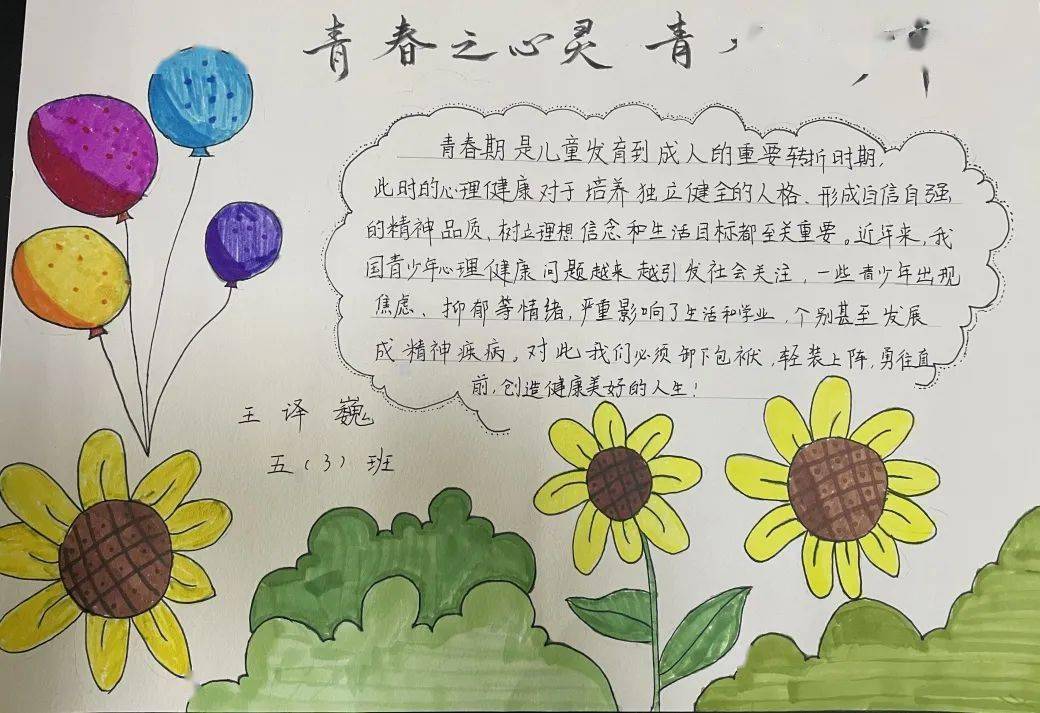 青春之心灵 青
青春期是儿童发育到成人的重要转折时期,
此时的心理健康对于培养独立健全的人格、形成自信自强
的精神品质、树立理想信念和生活目标都至关重要。近年来,我
国青少年心理健康问题越来越引发社会关注,一些青少年出现
焦虑、抑郁等情绪,严重影响了生活和学业,个别甚至发展
成精神疾病。对此我们必须卸下包袱,轻装上阵,勇往直
前,创造健康美好的人生!
王译巍
五(3)班